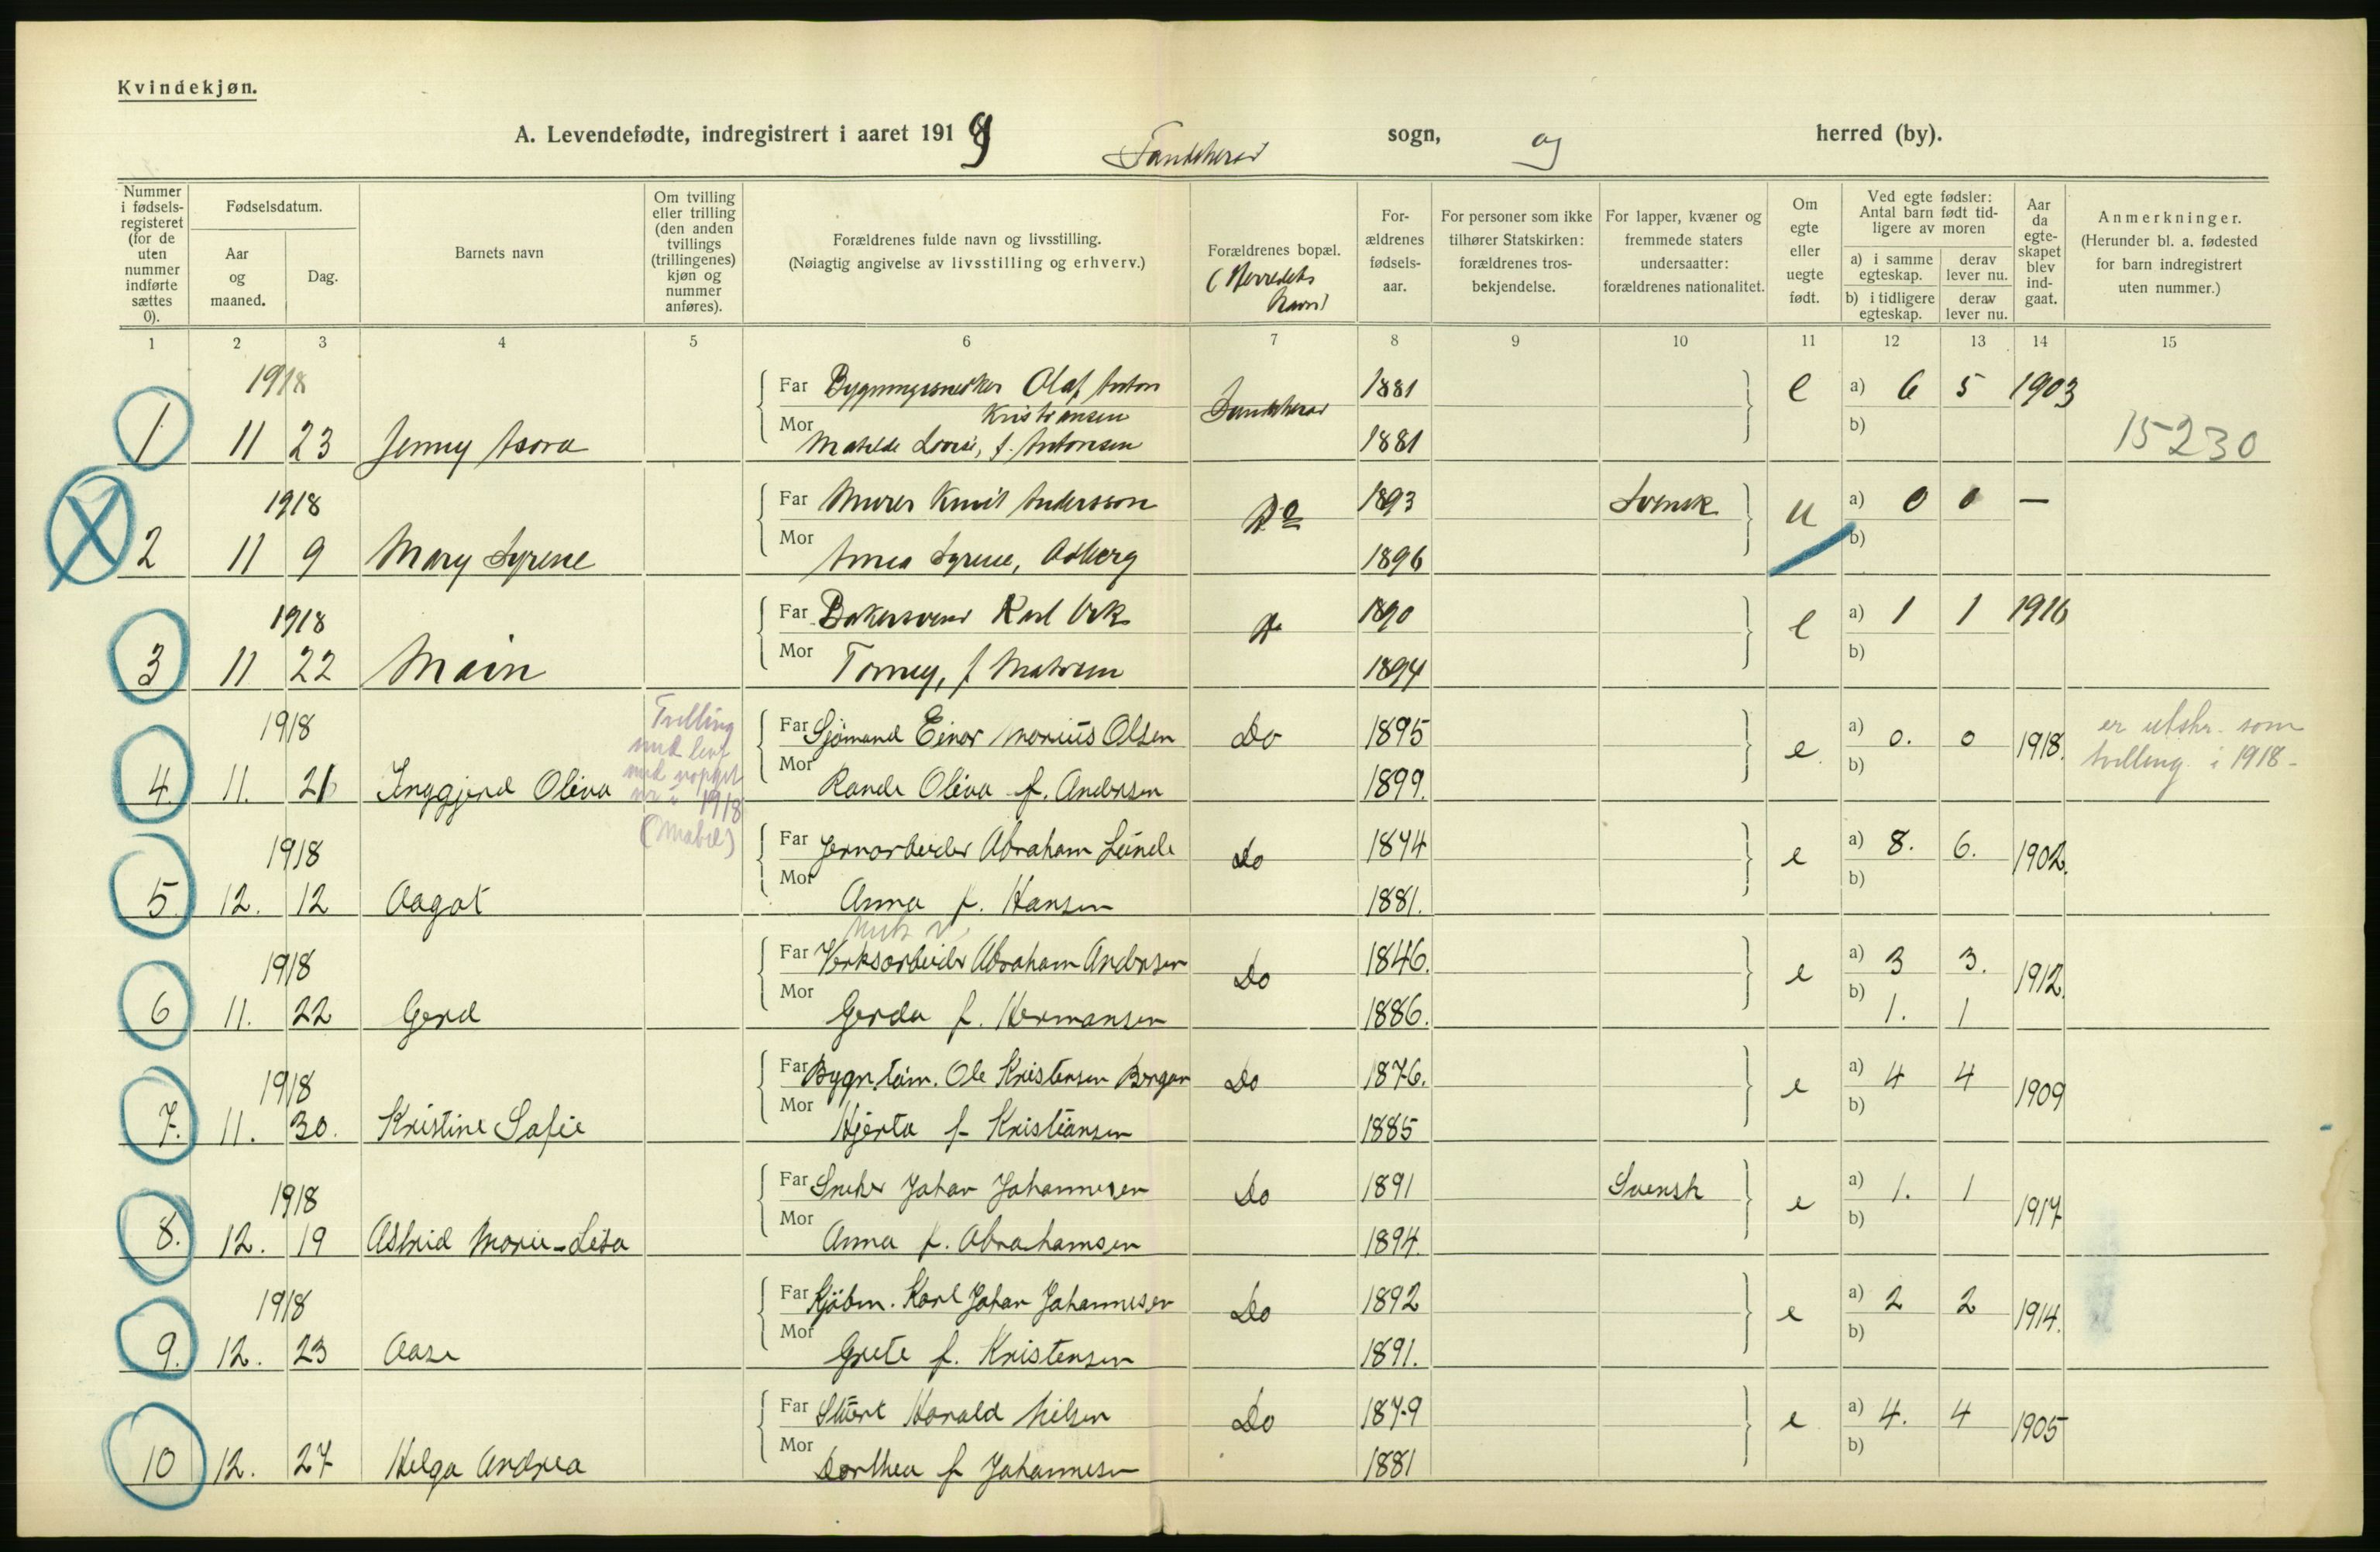 Kvindekjøn.
A. Levendefødte, indregistrert i aaret 1919 sogn, og herred (by).
Nummer i fødselsregisteret (for de uten nummer indførte sættes 0).
Fødselsdatum.
Aar og maaned.
Dag.
Barnets navn
Om tvilling eller trilling (den anden tvillings (trillingenes) kjøn og nummer anføres).
Forældrenes fulde navn og livsstilling.
(Nøiagtig angivelse av livsstilling og erhverv.)
Forældrenes bopæl.
(Herredets Navn)
Forældrenes fødselsaar.
For personer som ikke tilhører Statskirken: forældrenes trosbekjendelse.
For lapper, kvæner og fremmede staters undersaatter: forældrenes nationalitet.
Om egte eller uegte født.
Ved egte fødsler: Antal barn født tidligere av moren
a) i samme egteskap.
derav lever nu.
b) i tidligere egteskap.
derav lever nu.
Aar da egteskapet blev indgaat.
Anmerkninger.
(Herunder bl. a. fødested for barn indregistrert uten nummer.)
1 2 3 4 5 6 7 8 9 10 11 12 13 14 15
1918
Far Olaf Anton 1881 e a) 6 5 1903
Kristiansen
1 11 23 Jenny Mor Matilde Lovise, f. Antonsen 1881 b) 15230
1918
Far Murer Knut Andersson Do 1893 Svensk u a) 0 0 —
2 11 9 Mary Syrene Mor Anna Syrene, Asberg 1896 b)
1918
Far Bakersvend Karl 1890 e a) 1 1 1916
3 11 22 Main Mor f 1894 b)
1918 Tvilling
Far Sjømand Einar Marius Olsen Do 1895 e a) 0. 0 1918. er utskr. som
4. 11. 21 Inggjerd Oliva 1918 Mor Oliva f. Andersen 1899. b) tvilling i 1918-
(Mabel)
1918
Far Jernarbeider Abraham Lunde Do 1874 e a) 8. 6. 1902.
5. 12. 12 Aagot Mor Anna f. Hansen 1881. b)
1918
Far Verksarbeider Abraham Andersen Do 1876. e a) 3 3. 1912.
6 11. 22 Gerd Mor Gerda f. Hermansen 1886. b) 1. 1
1918
Far Bygn.tøm. Ole Kristensen Bergan Do 1876. e a) 4 4 1909
7. 11. 30. Kristine Sofie Mor Hjerta f. Kristiansen 1885 b)
1918
Far Sneker Johan Johannesen Do 1891 Svensk e a) 1. 1 1917
8. 12. 19 Astrid Marie-Lisa Mor Anna f. Abrahamsen 1894. b)
1918
Far Kjøbm. Karl Johan Johannesen Do 1892 e a) 2 2 1914.
9. 12. 23 Aase Mor Grete f. Kristensen 1891. b)
Far Stuert Harald Nilsen Do 1879 e a) 4. 4 1905
10 12. 27 Helga Andrea Mor Dorthea f Johannesen 1881 b)